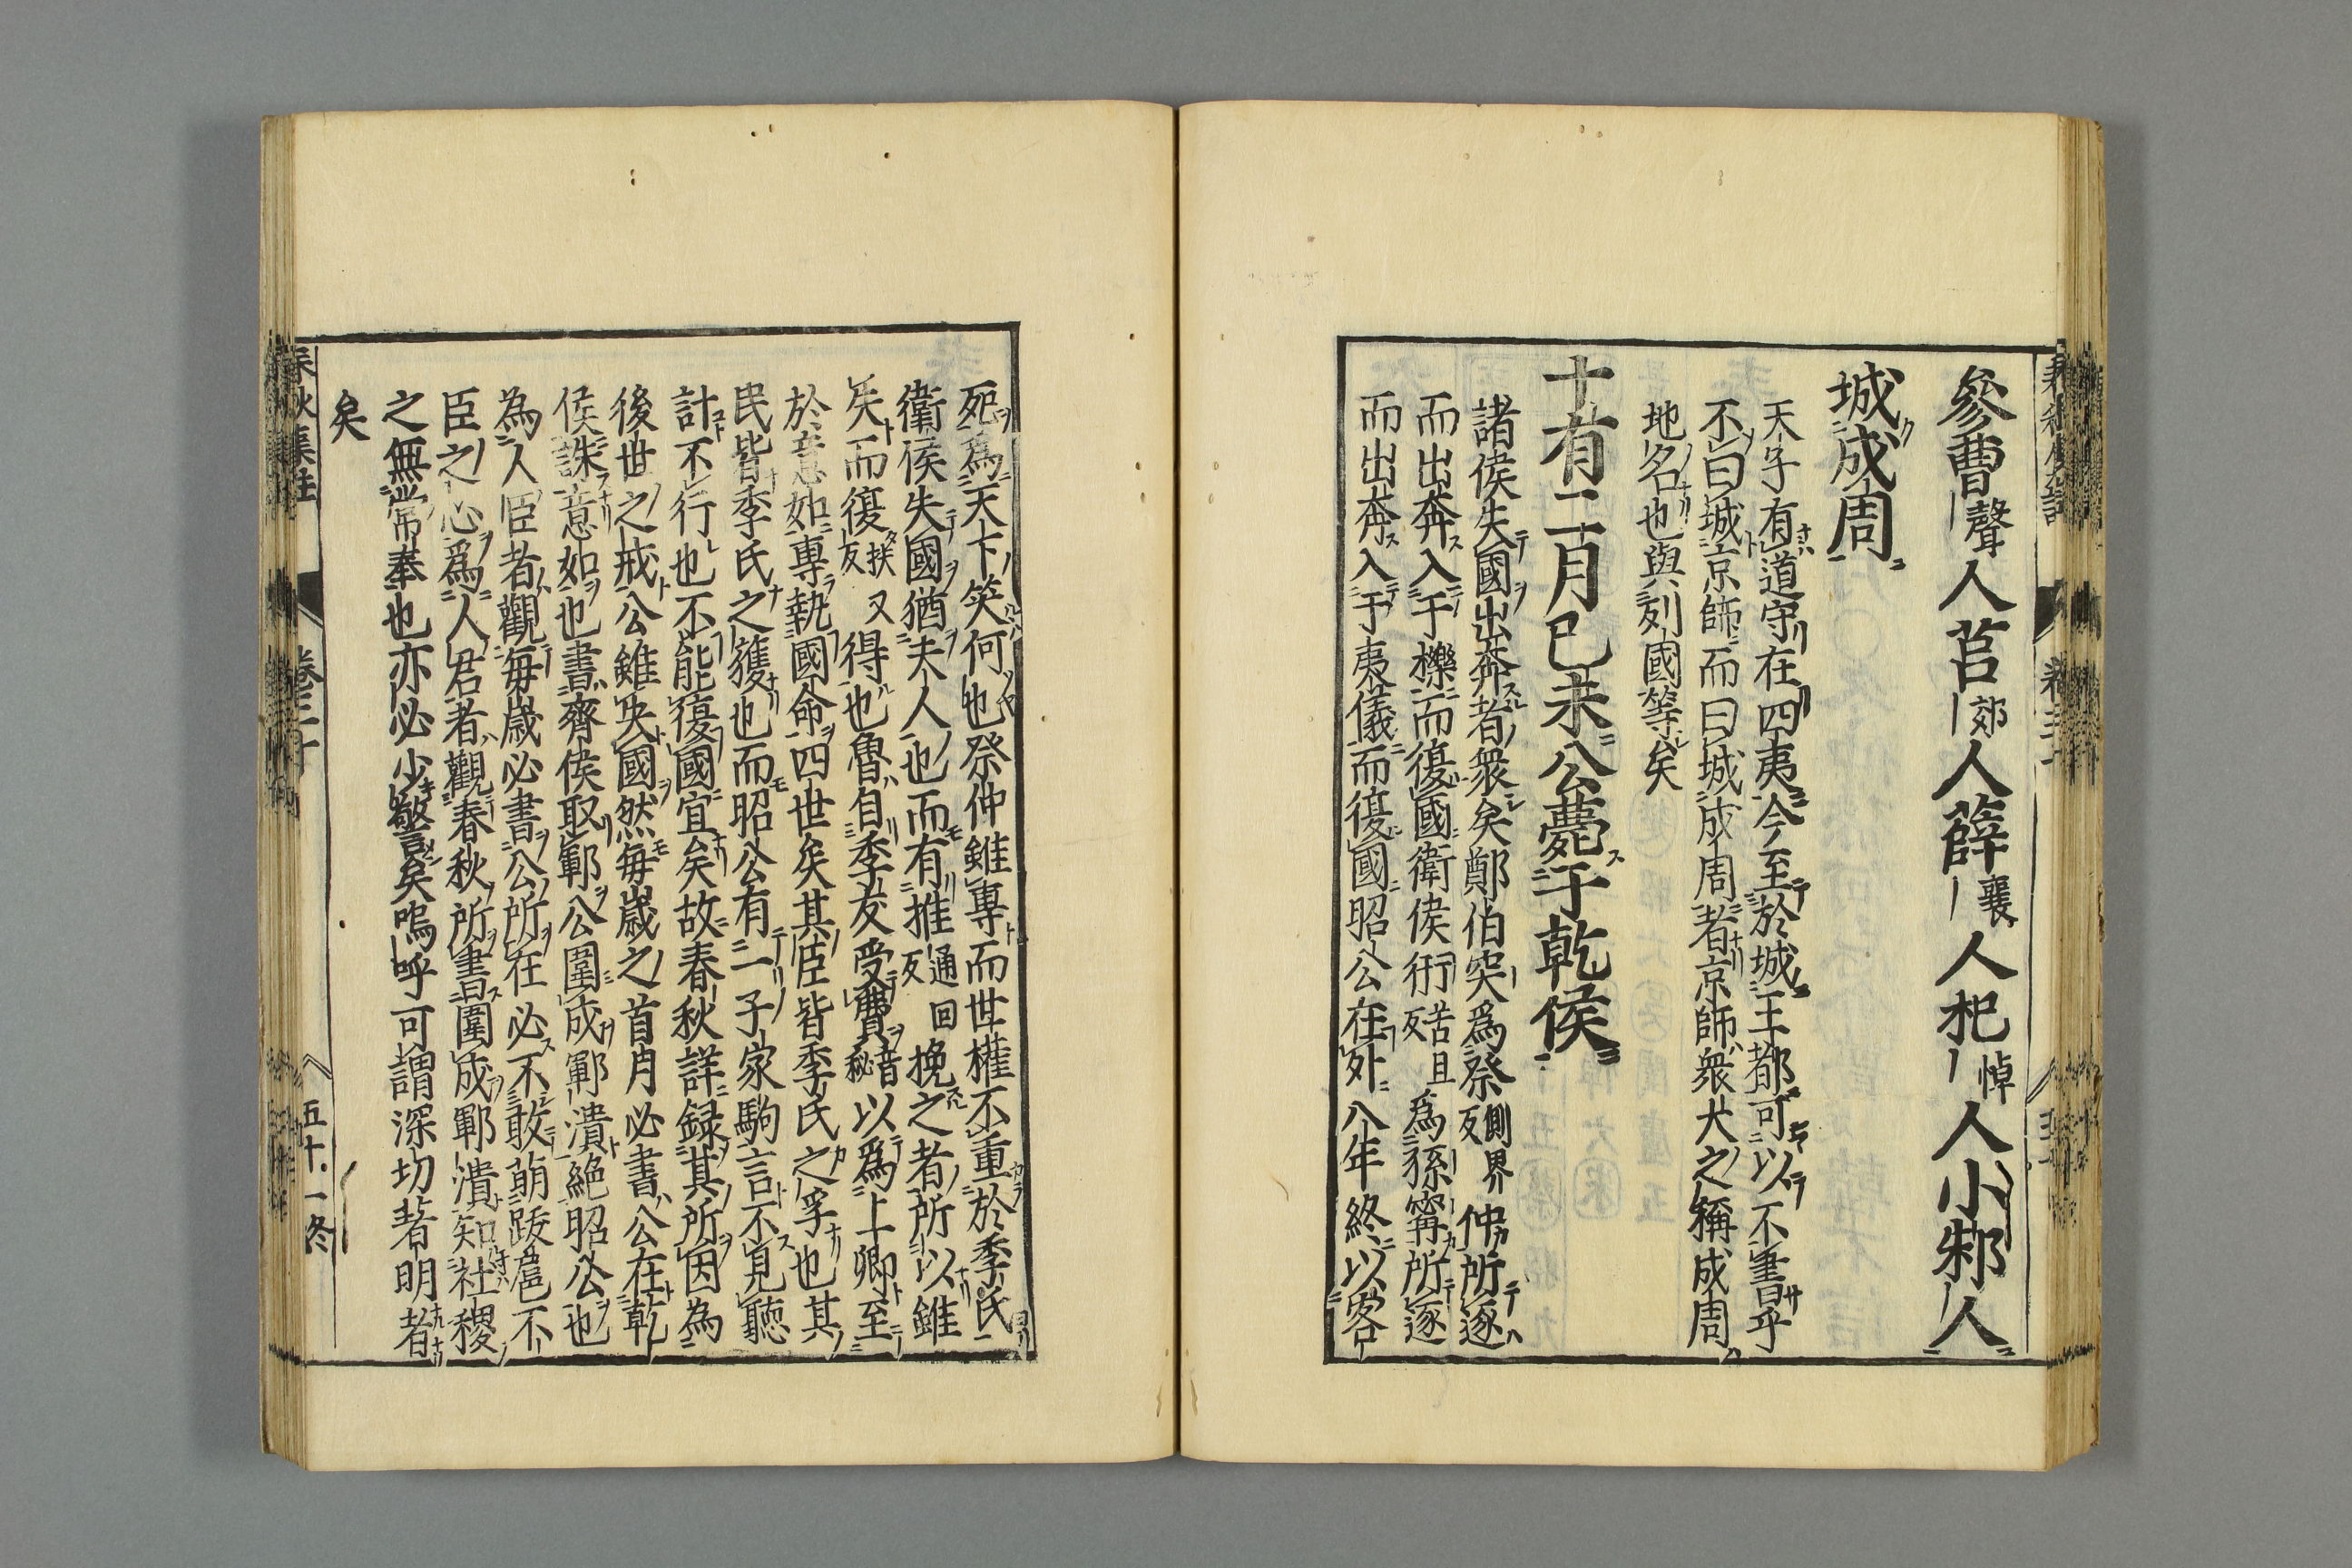 參曹聲人莒郊人薛襄人杞悼人小邾人
城成周
天子有道守在四夷今至於城王都可以不書乎
不曰城京師而曰城成周者京師衆大之稱成周
地名也與列國等矣
十有二月己未公薨于乾侯
諸侯失國出奔者衆矣鄭伯突爲祭側界反仲所逐
而出奔入于櫟而復國衛侯衎苦旦反爲孫甯所逐
而出奔入于夷儀而復國昭公在外八年終以客
死爲天下笑何也祭仲雖專而世權不重於季氏
衛侯失國猶夫人也而有推通回反挽之者所以雖
失而復扶又反得也魯自季友受費音秘以爲上卿至
於意如專執國命四世矣其臣皆季氏之孚也其
民皆季氏之獲也而昭公有一子家駒言不見聽
計不行也不能復國宜矣故春秋詳録其所因為
後世之戒公雖失國然毎歲之首月必書公在乾
侯誅意如也書齊侯取鄆公圍成鄆潰絶昭公也
為人臣者觀毎歲必書公所在必不敢萌跋扈不
臣之心爲人君者觀春秋所書圍成鄆潰知社稷
之無常奉也亦必少警矣嗚呼可謂深切著明者
矣
春秋集註
卷三十
五十一終